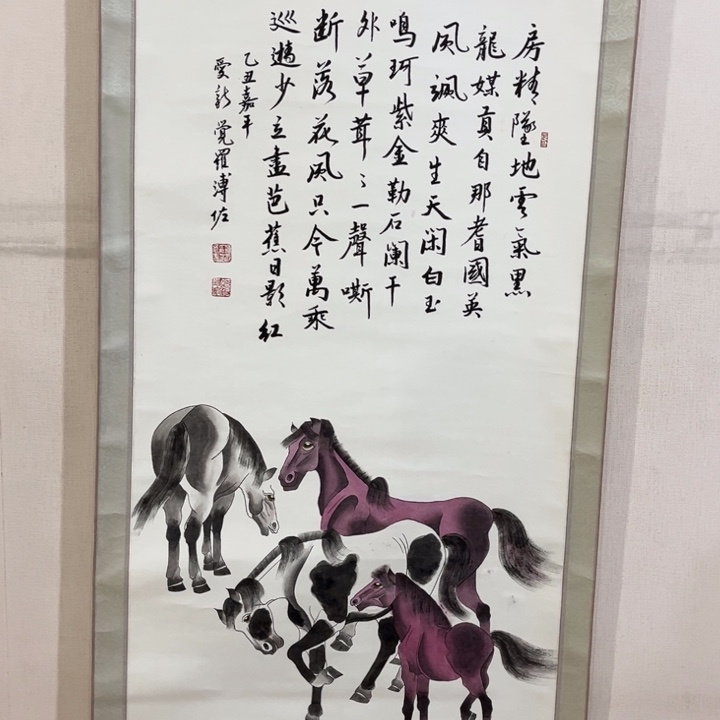 房精墜地雲氣黑
龍媒真自那耆國英
風颯爽生天闲白玉
鳴珂紫金勒石闌干
外草茸〻一聲嘶
断落花風只今萬乘
巡遊少立盡芭蕉日影紅
乙丑嘉平
愛新覺羅溥佐